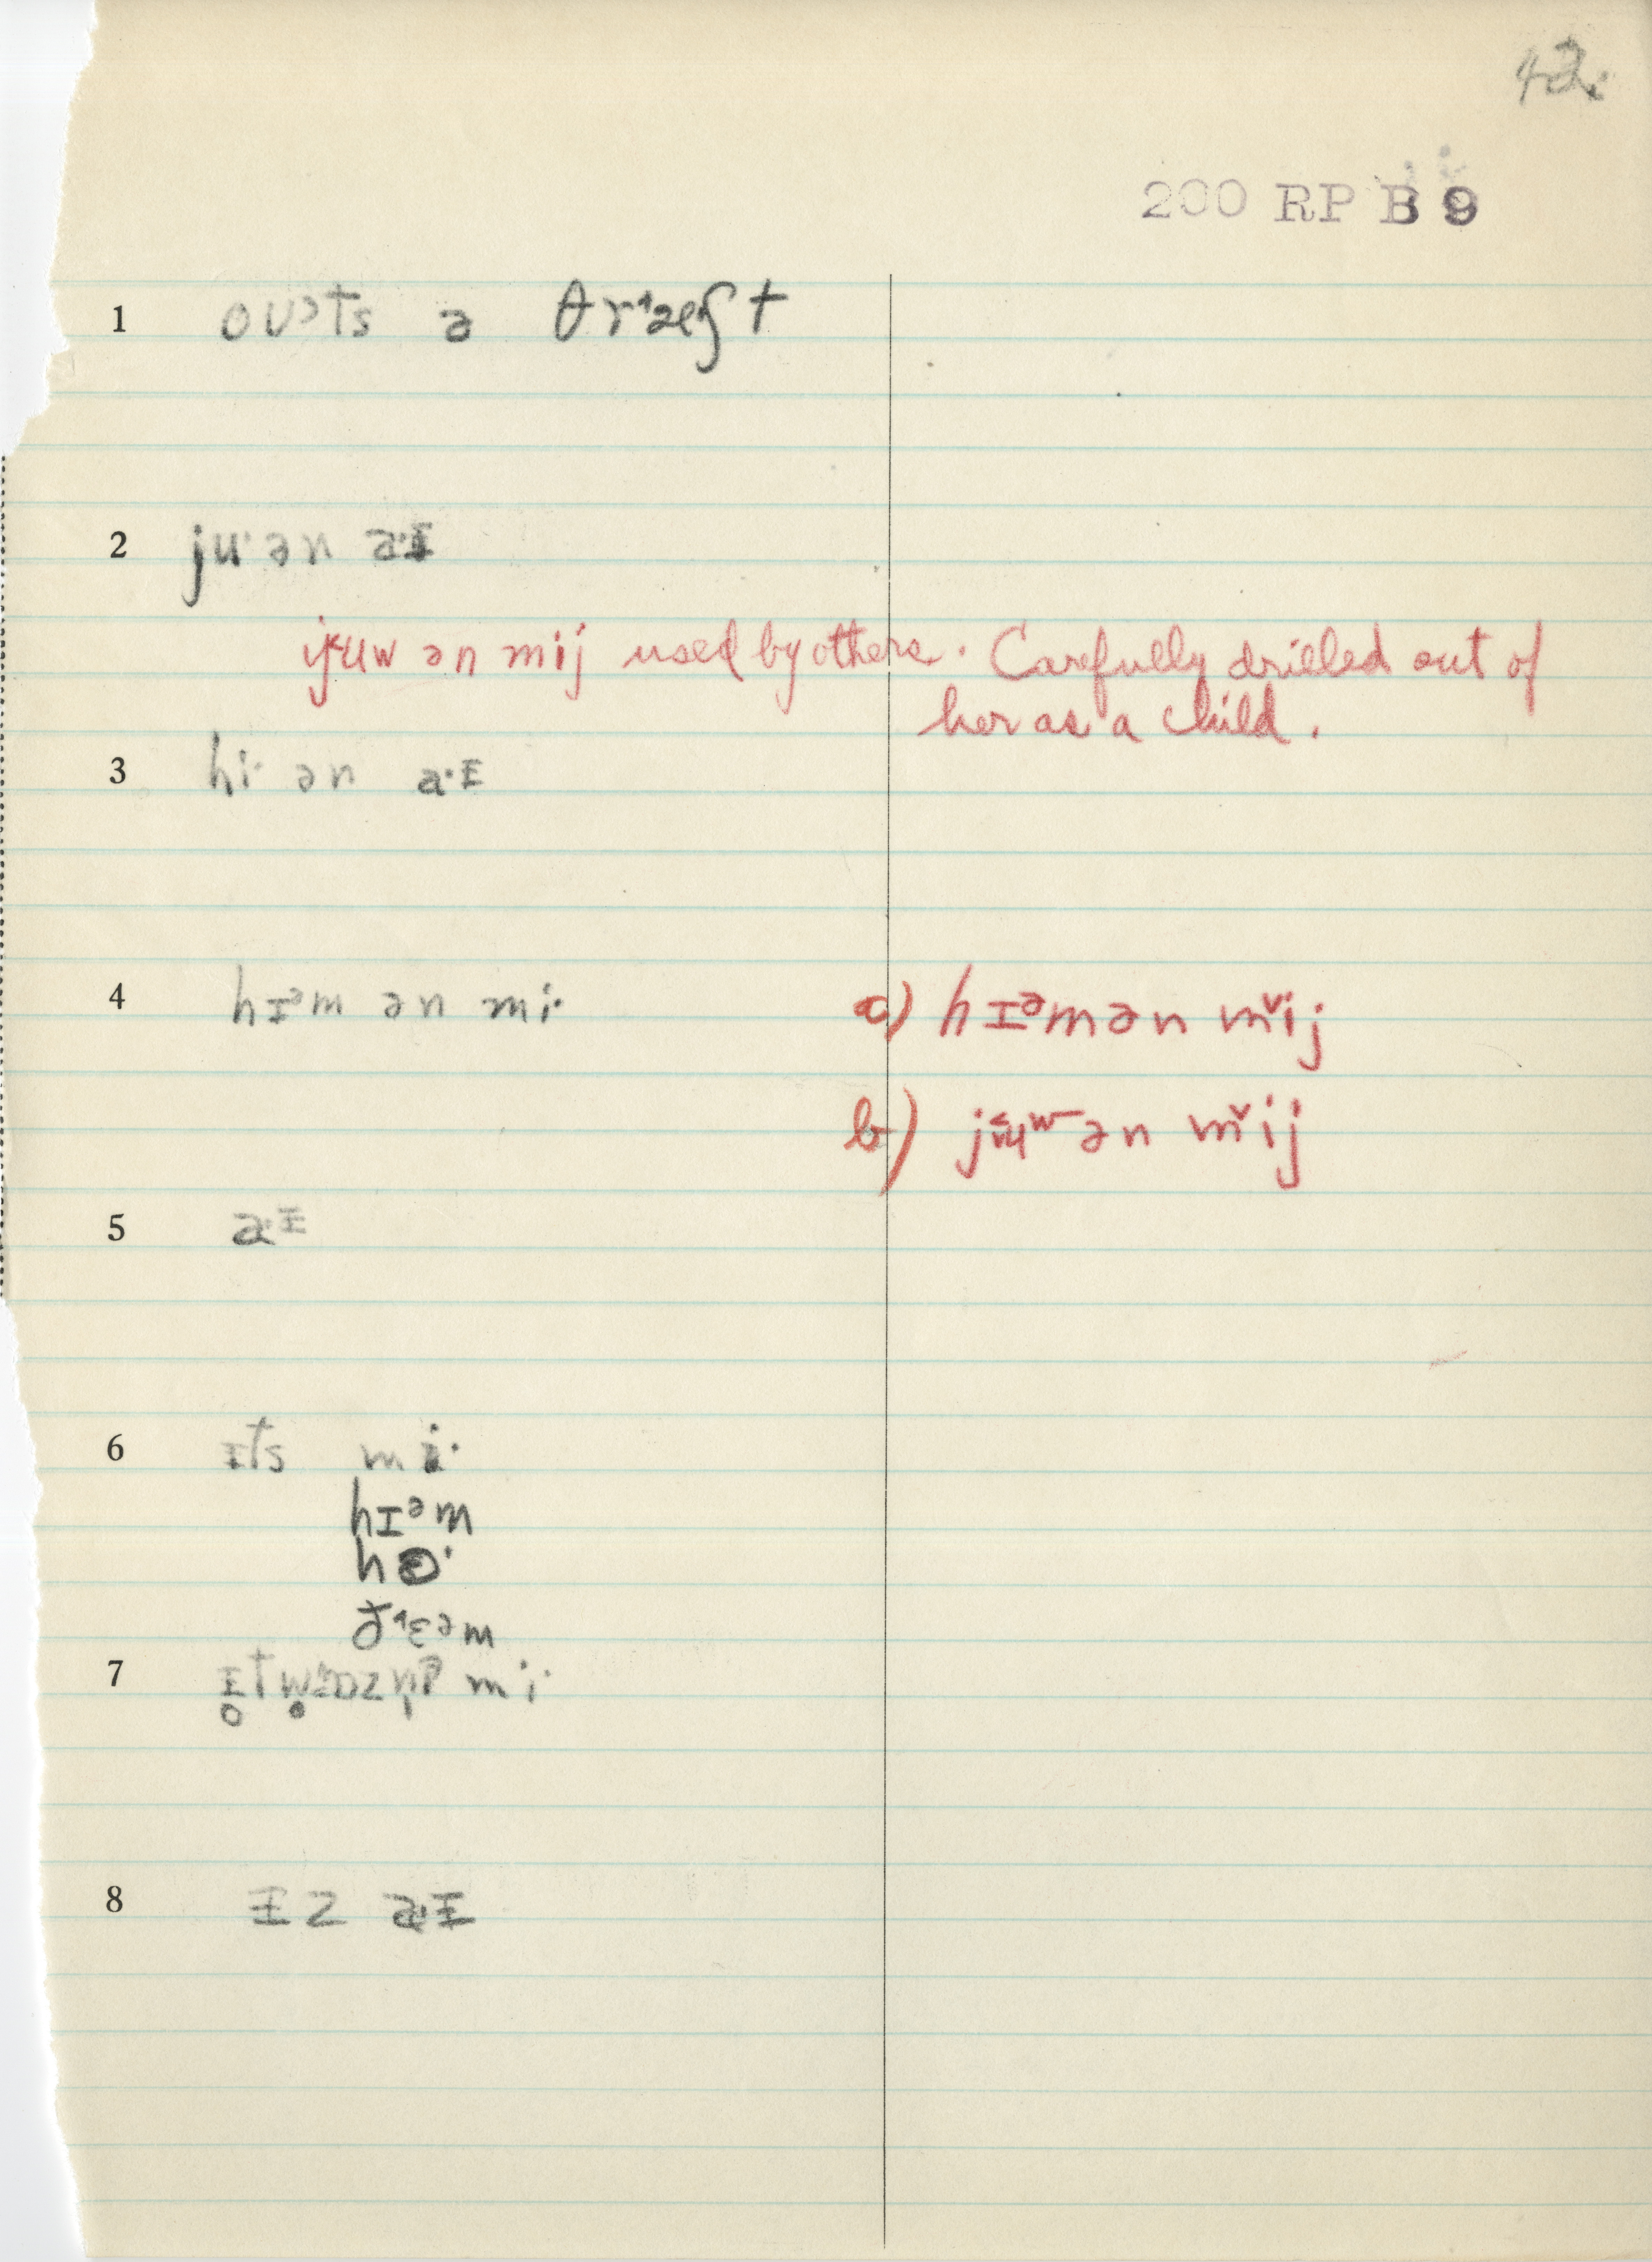 42.
200 RP B 9
1 oʊᵊts ə θr˞æʃt
2 ju· ən a·ɪ
jᵾw ən mij used by others. Carefully drilled out of
her as a child.
3 hi· ən a·ɪ
4 hɪᵊm ən mi· a) hɪᵊmən mˇij
b) jʉʷ ən mˇij
5 a·ɪ
6 ɪts mi·
hɪᵊm
h
ðɛᵊm
7 mi·
8 ɪz a·ɪ